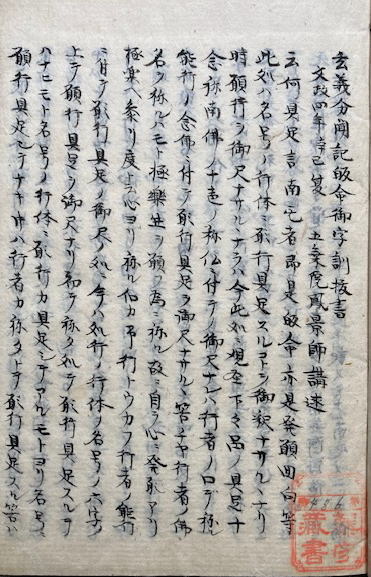 玄義分聞記皈命御字訓抜書
文政四年辛巳夏 五条院鳳景師講述
云何具足言南无者即是皈命亦是発願回向等
此処ハ名号ノ行体ニ願行具足スルコヲ御釈ナサルヽナリ
時願行ヲ御尺ナサルヽナラハ今此処ニ現至下々品ノ具足十
念称南無仏ノ十遍ノ称仏ニ付テノ御尺ナレハ行者ノ口デ称
能行ノ念佛ニ付テ願行具足ヲ御尺ナサルヽ筈ナヤ行者ノ佛
名ヲ称ルハモト極樂往生ヲ願フ為ニ称ル故ニ自ラ心ニ発願アリ
極楽ヘ参リ度ト云心ヨリ称ル仏カ即行トウカフ行者ノ能行
ニ付テ願行具足ノ御尺ノ処ノ今ハ処行ノ行体ノ名号ノ六字ノ
上テ願行具足ヲ御尺ナリ初テ称タ処テ願行具足スルテ
ハナヒモト名号ノ行体ニ願行カ具足シテアルモトヨリ名号ニ
願行具足シテナキ中ハ行者カ称タトテ願行具足スル筈ハ
藏書